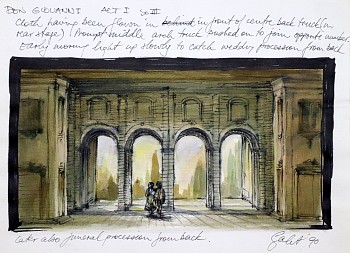 DON GIOVANNI ACT I Sc III
Cloth having been flown in behind in front of centre back truck (in
rear stage) Prompt middle arch truck pushed on to join opposite number.
Early morning light up slowly to catch wedding procession from back
Later also funeral procession from back.
90